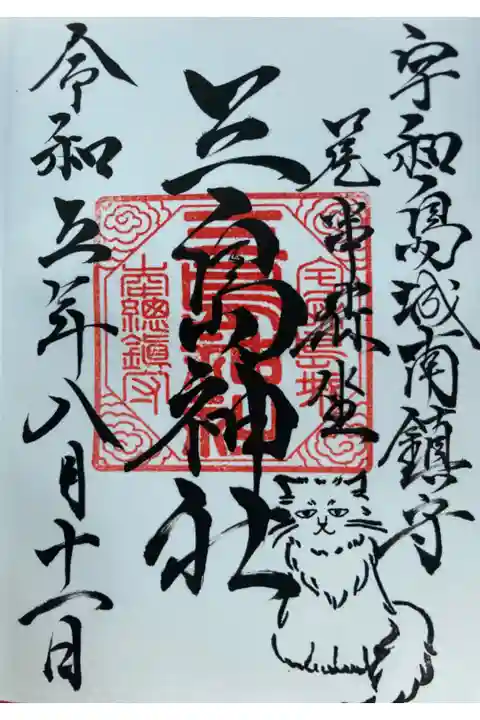 宇和島城南鎮守
尾串森坐
三島神社
令和五年八月十一日
宇和島城
南總鎮守
三島神社